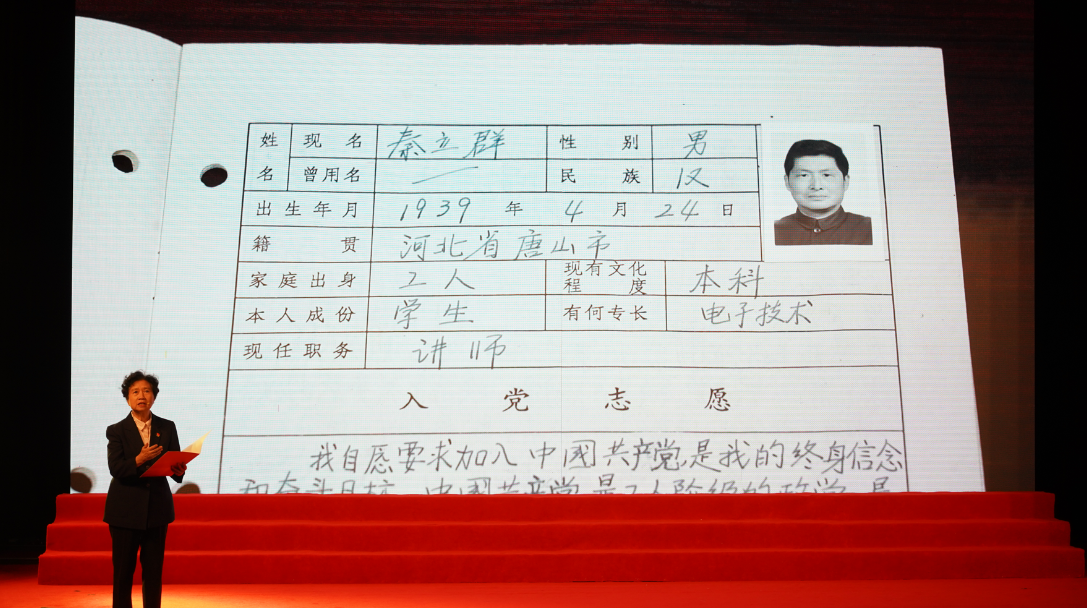 姓名 现名 秦立群 性别 男
曾用名 民族 汉
出生年月 1939 年 4 月 24 日
籍贯 河北省唐山市
家庭出身 工人 现有文化程度 本科
本人成份 学生 有何专长 电子技术
现任职务 讲师
入党志愿
我自愿要求加入中國共产党,是我的终身信念
和奋斗目标。中國共产党是工人阶级的政党,是